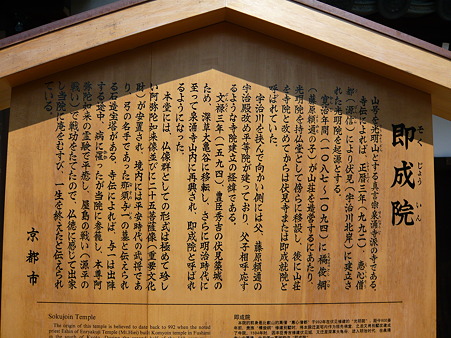 即成院
そく じょう いん
山号を光明山とする真言宗泉涌寺派の寺である。
寺伝によれば、正暦三年(九九二)、恵心僧
都(源信)により伏見(宇治川北岸)に建立さ
れた光明院を起源とする。
寛治年間(一〇八七~一〇九四)に橘俊綱
(藤原頼通の子)が山荘を造営するにあたり、
光明院を持仏堂として傍らに移設し、後に山荘
を寺院と改めてからは伏見寺または即成就院と
呼ばれていた。
宇治川を挟んで向かい側には父、藤原頼通の
宇治殿改め平等院が建っており、父子相呼応す
るような寺院建立の経緯である。
文禄三年(一五九四)、豊臣秀吉の伏見築城の
ため、深草大亀谷に移転し、さらに明治時代に
至って泉涌寺山内に再興され、即成院と呼ばれ
るようになった。
本堂には、仏像群としての形式は極めて珍し
い阿弥陀如来像並びに二十五菩薩像(重要文化
財)が安置され、境内には平安時代の武将であ
り、弓の名手であった那須与一の墓と伝えられ
る石造宝塔がある。寺伝によれば、与一は出陣
する途中、病に罹ったが当院に参籠し、本尊阿
弥陀如来の霊験で平癒し、屋島の戦い(源平の
戦い)で戦功をたてたので、仏徳に感じて出家
し当院に庵をむすび、一生を終えたと伝えられ
ている。
京都市
Sokujoin Temple
The origin of this temple is believed to date back to 992 when the noted
priest Eshin of Enryakuji Temple (Mt.Hiei) built Komyoin temple in Fushimi
即成院